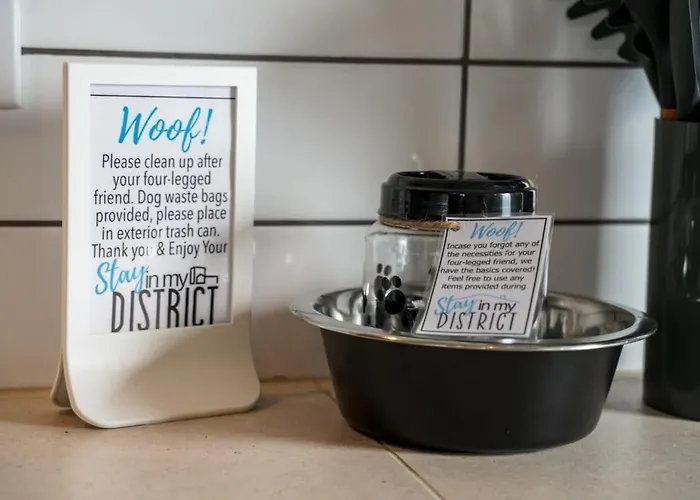 Woof!
Please clean up after
your four-legged
friend. Dog waste bags
provided, please place
in exterior trash can.
Thank you & Enjoy Your
Stay in my
DISTRICT
Woof!
Incase you forgot any of
the necessities for your
four-legged friend, we
have the basics covered!
Feel free to use any
items provided during
Stay in my
DISTRICT